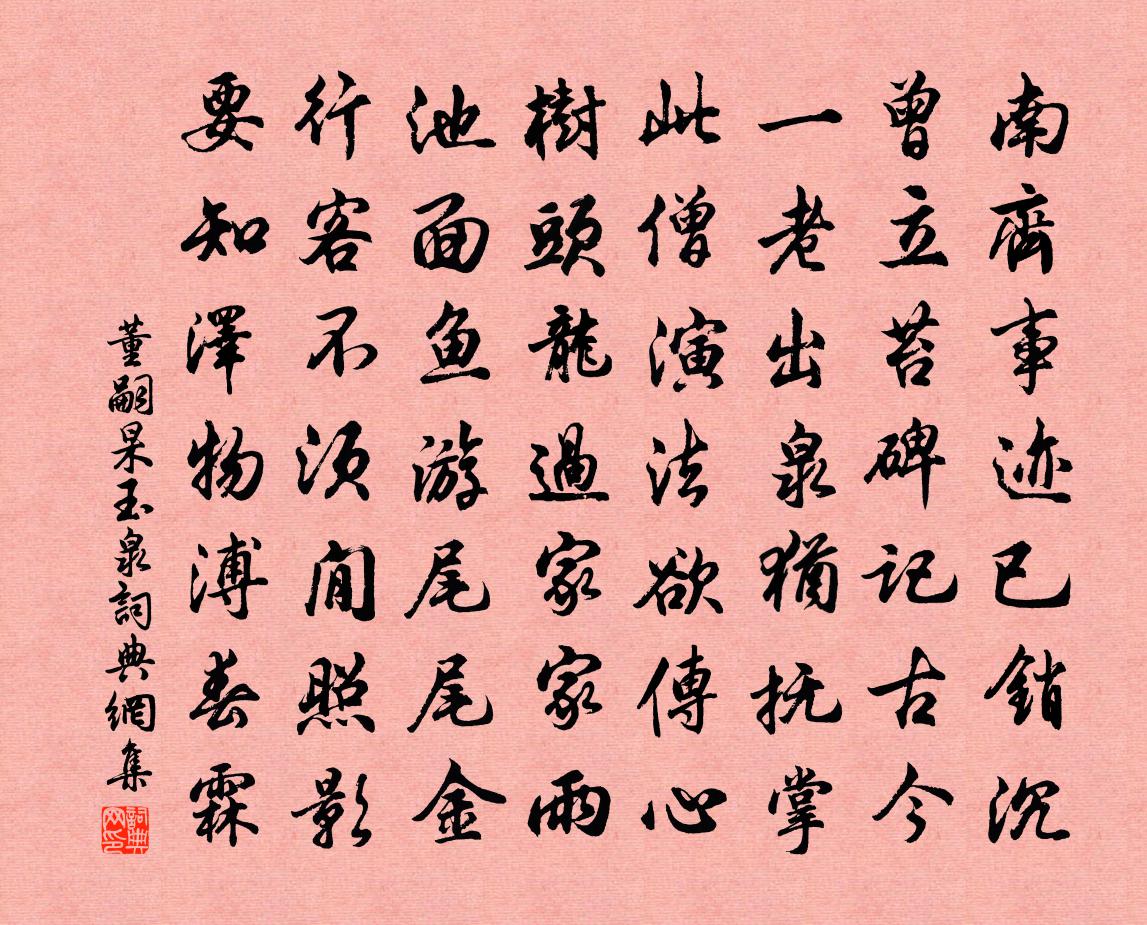 南齊事迹已銷沉
曾立苔碑記古今
一老出泉猶抚掌
此僧演法欲傳心
樹頭龍過家家雨
池面鱼游尾尾金
行客不须閒照影
要知澤物溥春霖
董嗣杲玉泉詞典網集
詞典网印